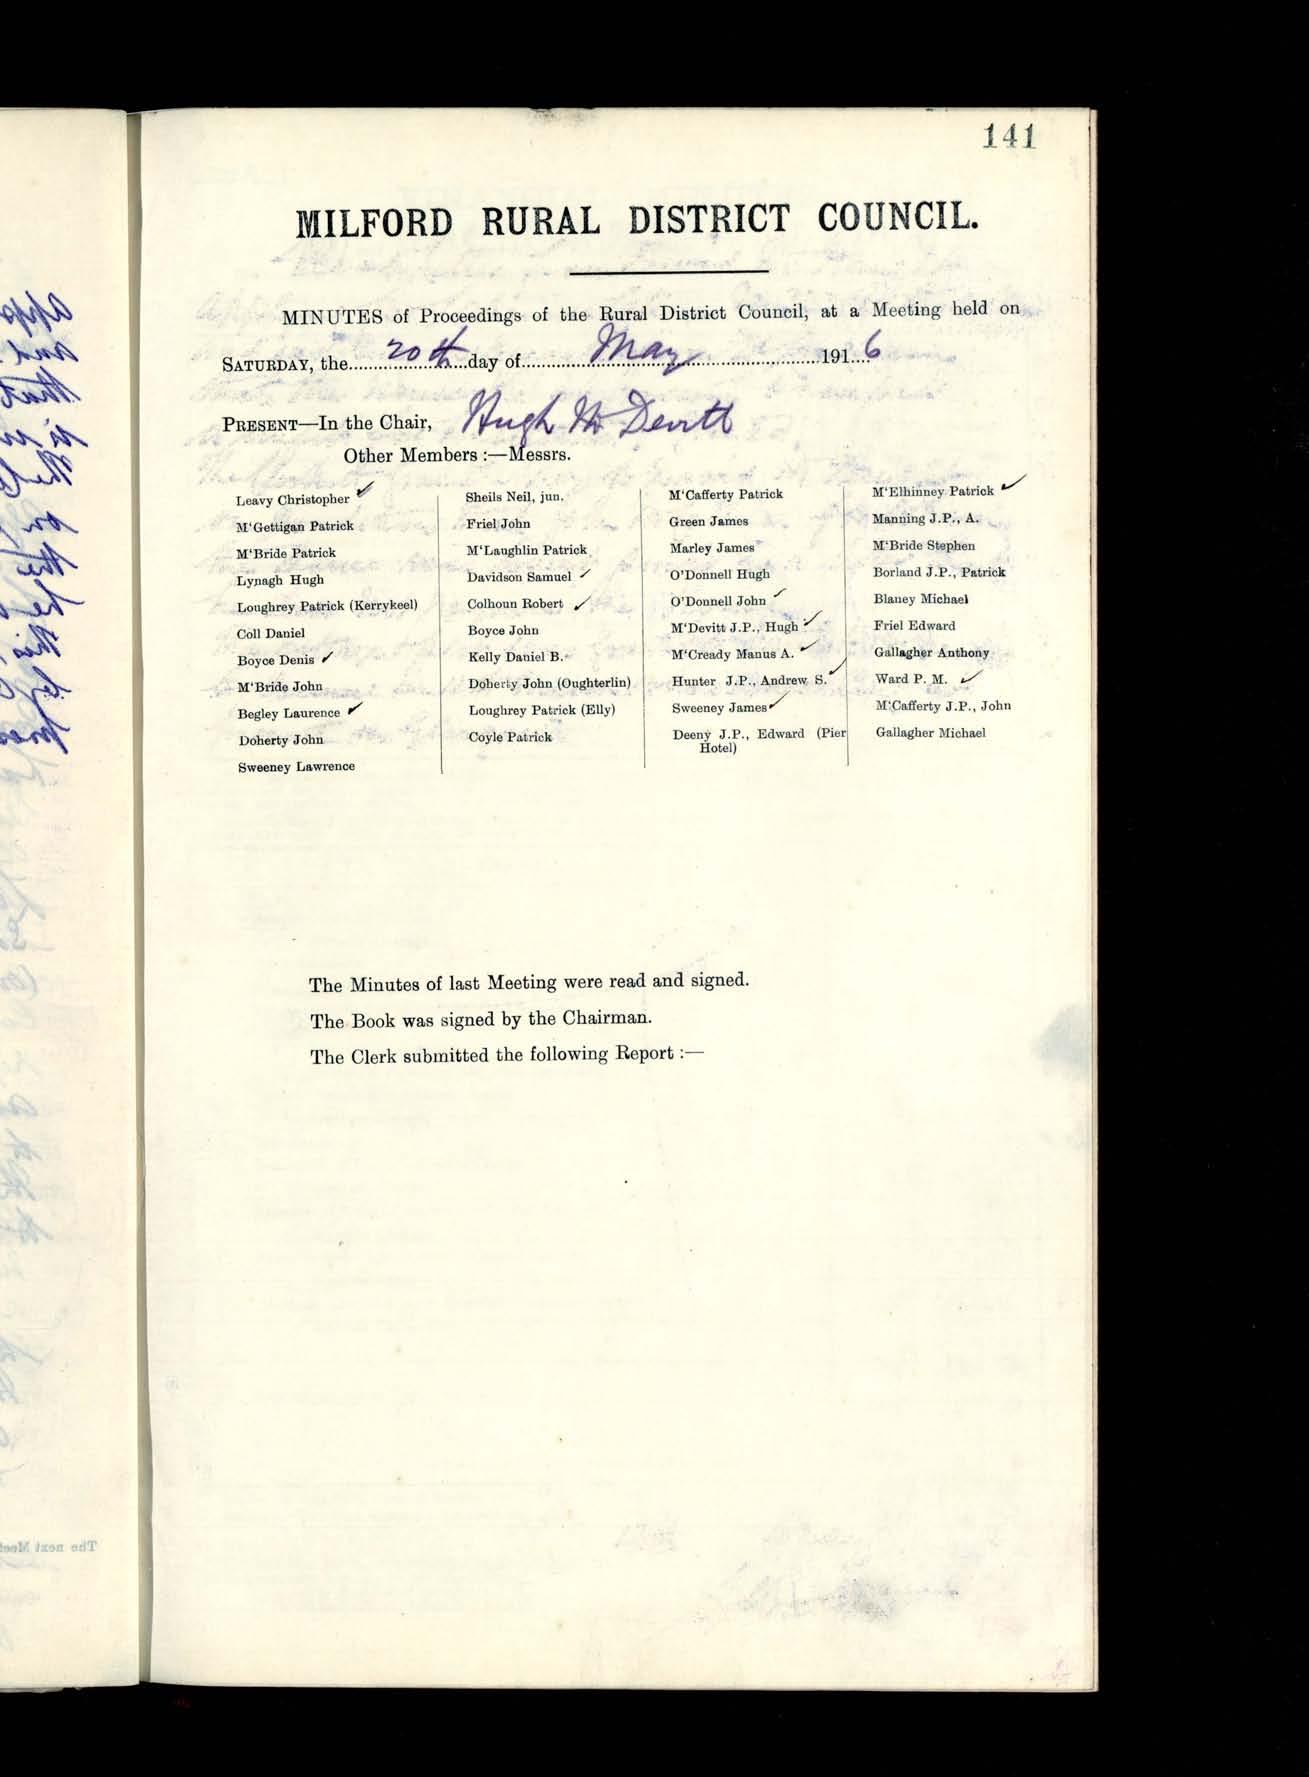 141
MILFORD RURAL DISTRICT COUNCIL.
MINUTES of Proceedings of the Rural District Council, at a Meeting held on
SATURDAY, the 20th day of May 1916
PRESENT—In the Chair, Hugh McDevitt
Other Members :—Messrs.
Leavy Christopher ✓
M'Gettigan Patrick
M'Bride Patrick
Lynagh Hugh
Loughrey Patrick (Kerrykeel)
Coll Daniel
Boyce Denis ✓
M'Bride John
Begley Laurence ✓
Doherty John
Sweeney Lawrence
Sheils Neil, jun.
Friel John
M'Laughlin Patrick
Davidson Samuel ✓
Colhoun Robert ✓
Boyce John
Kelly Daniel B.
Doherty John (Oughterlin)
Loughrey Patrick (Elly)
Coyle Patrick
M'Cafferty Patrick
Green James
Marley James
O'Donnell Hugh
O'Donnell John ✓
M'Devitt J.P., Hugh ✓
M'Cready Manus A. ✓
Hunter J.P., Andrew S. ✓
Sweeney James ✓
Deeny J.P., Edward (Pier
Hotel)
M'Elhinney Patrick ✓
Manning J.P., A.
M'Bride Stephen
Borland J.P., Patrick
Blaney Michael
Friel Edward
Gallagher Anthony
Ward P. M. ✓
M'Cafferty J.P., John
Gallagher Michael
The Minutes of last Meeting were read and signed.
The Book was signed by the Chairman.
The Clerk submitted the following Report :—
The next Meet